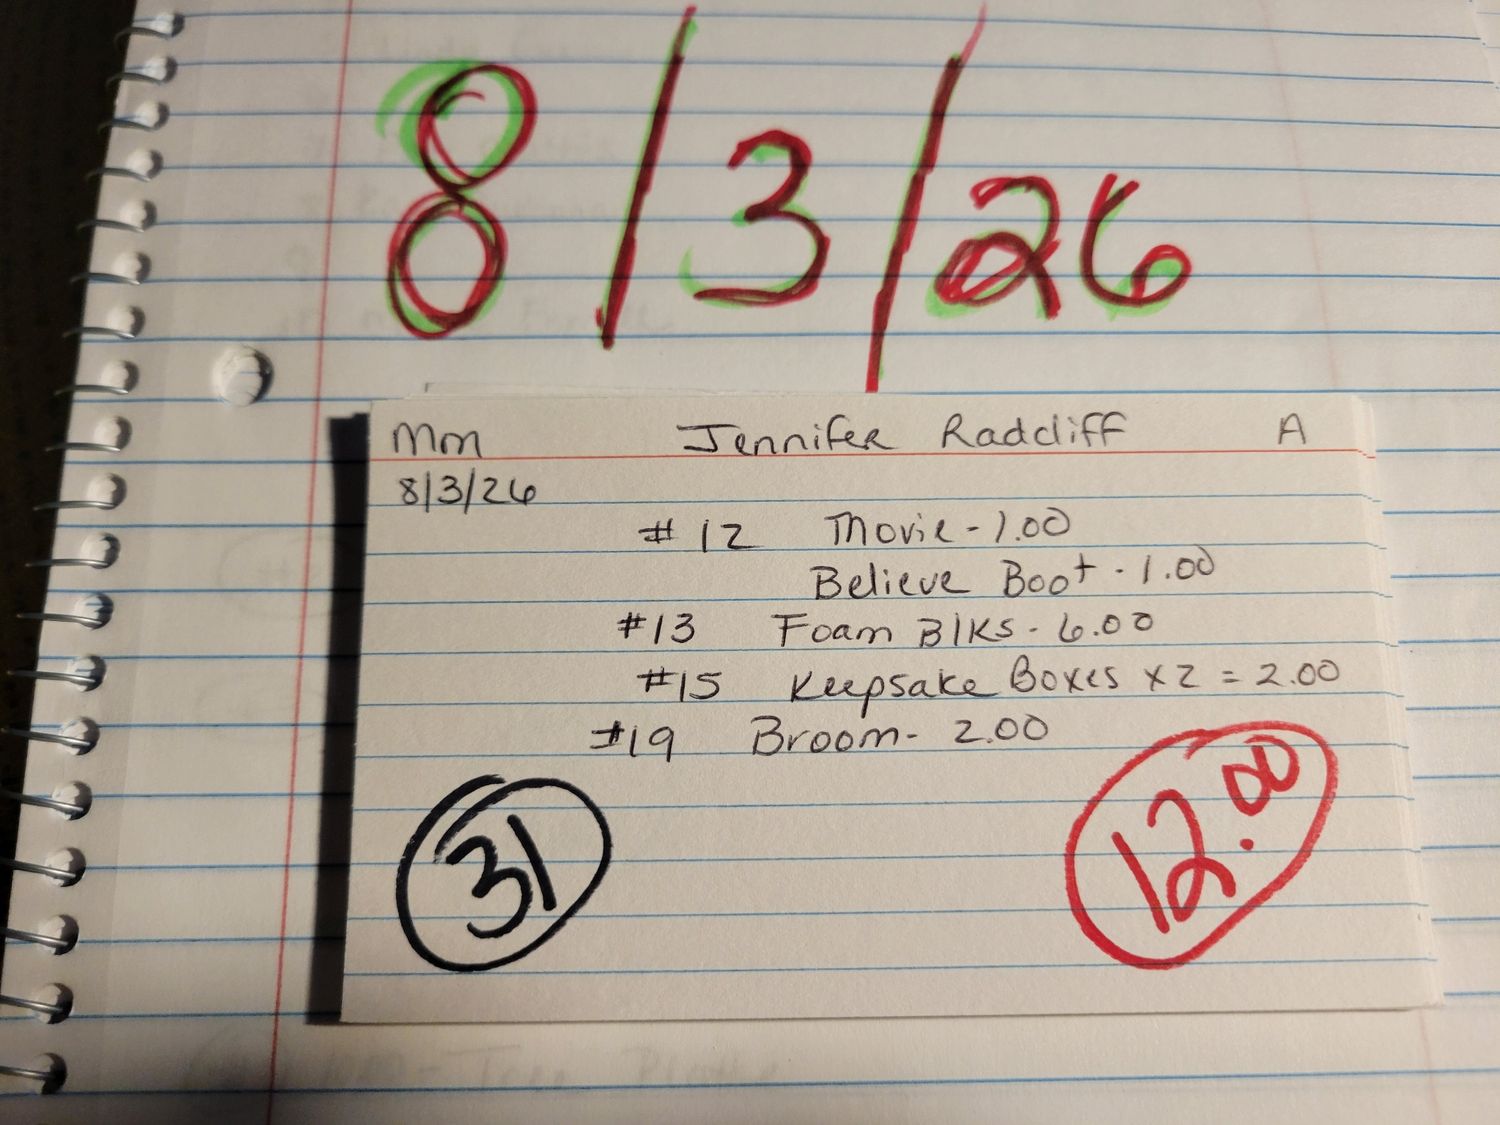 8/3/26
Mm Jennifer Radcliff A
8/3/26
# 12 Movie - 1.00
Believe Boot - 1.00
#13 Foam Blks - 6.00
#15 Keepsake Boxes x 2 = 2.00
#19 Broom - 2.00
31
12.00